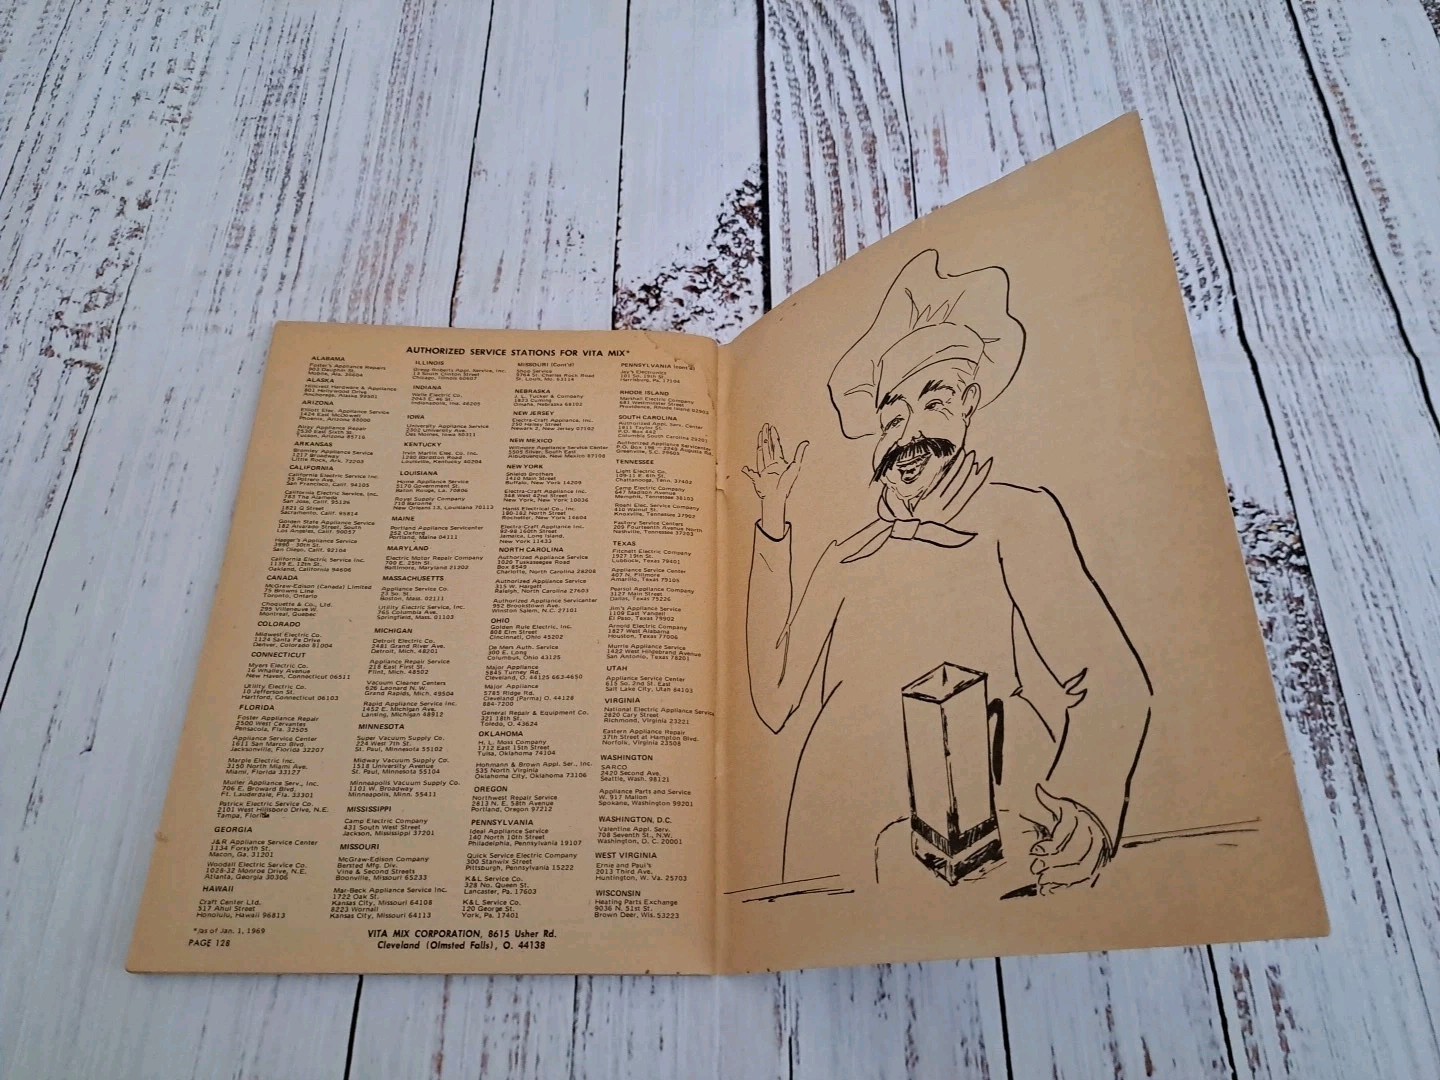 AUTHORIZED SERVICE STATIONS FOR VITA MIX*
ALABAMA
Foster's Appliance Repairs
Mobile, Ala.
ALASKA
Hillcrest Hardware & Appliance
801 Hollywood Drive
Anchorage, Alaska 99501
ARIZONA
Elliott Elec. Appliance Service
1424 East McDowell
Phoenix, Arizona
Alray Appliance Repair
2530 East Sixth St.
Tucson, Arizona 85716
ARKANSAS
Bromley Appliance Service
1217 Broadway
Little Rock, Ark. 72202
CALIFORNIA
California Electric Service Inc.
55 Potrero Ave.
San Francisco, Calif. 94103
California Electric Service, Inc.
783 The Alameda
San Jose, Calif. 95126
1821 Q Street
Sacramento, Calif. 95814
Golden State Appliance Service
182 Alvarado Street, South
Los Angeles, Calif. 90057
Haeger's Appliance Service
30th St.
San Diego, Calif. 92104
California Electric Service Inc.
1139 E. 12th St.
Oakland, California 94606
CANADA
McGraw-Edison (Canada) Limited
75 Browns Line
Toronto, Ontario
Choquette & Co., Ltd.
295 Villeneuve W.
Montreal, Quebec
COLORADO
Midwest Electric Co.
1124 Santa Fe Drive
Denver, Colorado 81004
CONNECTICUT
Myers Electric Co.
16 Whalley Avenue
New Haven, Connecticut 06511
Utility Electric Co.
10 Jefferson St.
Hartford, Connecticut 06103
FLORIDA
Foster Appliance Repair
2500 West Cervantes
Pensacola, Fla. 32505
Appliance Service Center
1611 San Marco Blvd.
Jacksonville, Florida 32207
Marple Electric Inc.
3150 North Miami Ave.
Miami, Florida 33127
Muller Appliance Serv., Inc.
706 E. Broward Blvd.
Ft. Lauderdale, Fla. 33301
Patrick Electric Service Co.
2101 West Hillsboro Drive, N.E.
Tampa, Florida
GEORGIA
J&R Appliance Service Center
1134 Forsyth St.
Macon, Ga. 31201
Woodall Electric Service Co.
1028-32 Monroe Drive, N.E.
Atlanta, Georgia 30306
HAWAII
Craft Center Ltd.
517 Ahui Street
Honolulu, Hawaii 96813
*/as of Jan. 1, 1969
PAGE 128
ILLINOIS
Gregg-Roberts Appl. Service, Inc.
13 South Clinton Street
Chicago, Illinois 60607
INDIANA
Helle Electric Co.
2043 E. 46 St.
Indianapolis, Ind. 46205
IOWA
University Appliance Service
2302 University Ave.
Des Moines, Iowa 50311
KENTUCKY
Irvin Martin Elec. Co. Inc.
1280 Bardston Road
Louisville, Kentucky 40204
LOUISIANA
Home Appliance Service
5170 Government St.
Baton Rouge, La. 70806
Royal Supply Company
710 Baronne
New Orleans 13, Louisiana 70113
MAINE
Portland Appliance Servicenter
252 Oxford
Portland, Maine 04111
MARYLAND
Electric Motor Repair Company
700 E. 25th St.
Baltimore, Maryland 21202
MASSACHUSETTS
Appliance Service Co.
23 So. St.
Boston, Mass. 02111
Utility Electric Service, Inc.
765 Columbia Ave.
Springfield, Mass. 01103
MICHIGAN
Detroit Electric Co.
2481 Grand River Ave.
Detroit, Mich. 48201
Appliance Repair Service
218 East First St.
Flint, Mich. 48502
Vacuum Cleaner Centers
626 Leonard N.W.
Grand Rapids, Mich. 49504
Rapid Appliance Service Inc.
1452 E. Michigan Ave.
Lansing, Michigan 48912
MINNESOTA
Super Vacuum Supply Co.
224 West 7th St.
St. Paul, Minnesota 55102
Midway Vacuum Supply Co.
1518 University Avenue
St. Paul, Minnesota 55104
Minneapolis Vacuum Supply Co.
1101 W. Broadway
Minneapolis, Minn. 55411
MISSISSIPPI
Camp Electric Company
431 South West Street
Jackson, Mississippi 37201
MISSOURI
McGraw-Edison Company
Bersted Mfg. Div.
Vine & Second Streets
Boonville, Missouri 65233
Mar-Beck Appliance Service Inc.
1722 Oak St.
Kansas City, Missouri 64108
8223 Wornall
Kansas City, Missouri 64113
MISSOURI (Cont'd)
Shop Service
8764 St. Charles Rock Road
St. Louis, Mo. 63114
NEBRASKA
J. L. Tucker & Company
1823 Cuming
Omaha, Nebraska 68102
NEW JERSEY
Electra-Craft Appliance, Inc.
250 Halsey Street
Newark 2, New Jersey 07102
NEW MEXICO
Winnona Appliance Service Center
5505 Silver, South East
Albuquerque, New Mexico 87108
NEW YORK
Shields Brothers
1418 Main Street
Buffalo, New York 14209
Electra-Craft Appliance Inc.
348 West 42nd Street
New York, New York 10036
Hanti Electrical Co., Inc.
180-182 North Street
Rochester, New York 14604
Electra-Craft Appliance Inc.
92-98 160th Street
Jamaica, Long Island,
New York 11433
NORTH CAROLINA
Authorized Appliance Service
1020 Tuckaseegee Road
Box 8549
Charlotte, North Carolina 28208
Authorized Appliance Service
315 W. Hargett
Raleigh, North Carolina 27603
Authorized Appliance Servicenter
952 Brookstown Ave.
Winston Salem, N.C. 27101
OHIO
Golden Rule Electric, Inc.
808 Elm Street
Cincinnati, Ohio 45202
De Mers Auth. Service
300 E. Long
Columbus, Ohio 43125
Major Appliance
5845 Turney Rd.
Cleveland, O. 44125 663-4650
Major Appliance
5785 Ridge Rd.
Cleveland (Parma) O. 44128
884-7200
General Repair & Equipment Co.
321 18th St.
Toledo, O. 43624
OKLAHOMA
H. L. Moss Company
1712 East 15th Street
Tulsa, Oklahoma 74104
Hohmann & Brown Appl. Ser., Inc.
535 North Virginia
Oklahoma City, Oklahoma 73106
OREGON
Northwest Repair Service
2813 N. E. 58th Avenue
Portland, Oregon 97212
PENNSYLVANIA
Ideal Appliance Service
140 North 10th Street
Philadelphia, Pennsylvania 19107
Quick Service Electric Company
300 Stanwix Street
Pittsburgh, Pennsylvania 15222
K&L Service Co.
328 No. Queen St.
Lancaster, Pa. 17603
K&L Service Co.
120 George St.
York, Pa. 17401
PENNSYLVANIA (cont'd)
Jay's Electronics
101 So. 19th St.
Harrisburg, Pa. 17104
RHODE ISLAND
Marshall Electric Company
681 Westminster Street
Providence, Rhode Island 02903
SOUTH CAROLINA
Authorized Appl. Serv. Center
1811 Taylor St.
P.O. Box 442
Columbia South Carolina 29201
Authorized Appliance Servicenter
Greenville, S.C. 29605
TENNESSEE
Light Electric Co.
109-11 E. 6th St.
Chattanooga, Tenn. 37402
Camp Electric Company
647 Madison Avenue
Memphis, Tennessee 38103
Roehl Elec. Service Company
410 Walnut St.
Knoxville, Tennessee 37902
Factory Service Centers
209 Fourteenth Avenue North
Nashville, Tennessee 37203
TEXAS
Fitchett Electric Company
1927 19th St.
Lubbock, Texas 79401
Appliance Service Center
407 N. Fillmore
Amarillo, Texas 79106
Pearsol Appliance Company
3127 Main Street
Dallas, Texas 75226
Jim's Appliance Service
1109 East Yandell
El Paso, Texas 79902
Arnold Electric Company
1827 West Alabama
Houston, Texas 77006
Murris Appliance Service
1432 West Hildebrand Avenue
San Antonio, Texas 78201
UTAH
Appliance Service Center
615 So. 2nd St. East
Salt Lake City, Utah 84103
VIRGINIA
National Electric Appliance Service
2820 Cary Street
Richmond, Virginia 23221
Eastern Appliance Repair
37th Street at Hampton Blvd.
Norfolk, Virginia 23508
WASHINGTON
SARCO
2420 Second Ave.
Seattle, Wash. 98121
Appliance Parts and Service
W. 917 Mallon
Spokane, Washington 99201
WASHINGTON, D.C.
Valentine Appl. Serv.
708 Seventh St., N.W.
Washington, D. C. 20001
WEST VIRGINIA
Ernie and Paul's
2013 Third Ave.
Huntington, W. Va. 25703
WISCONSIN
Heating Parts Exchange
9036 N. 51st St.
Brown Deer, Wis. 53223
VITA MIX CORPORATION, 8615 Usher Rd.
Cleveland (Olmsted Falls), O. 44138